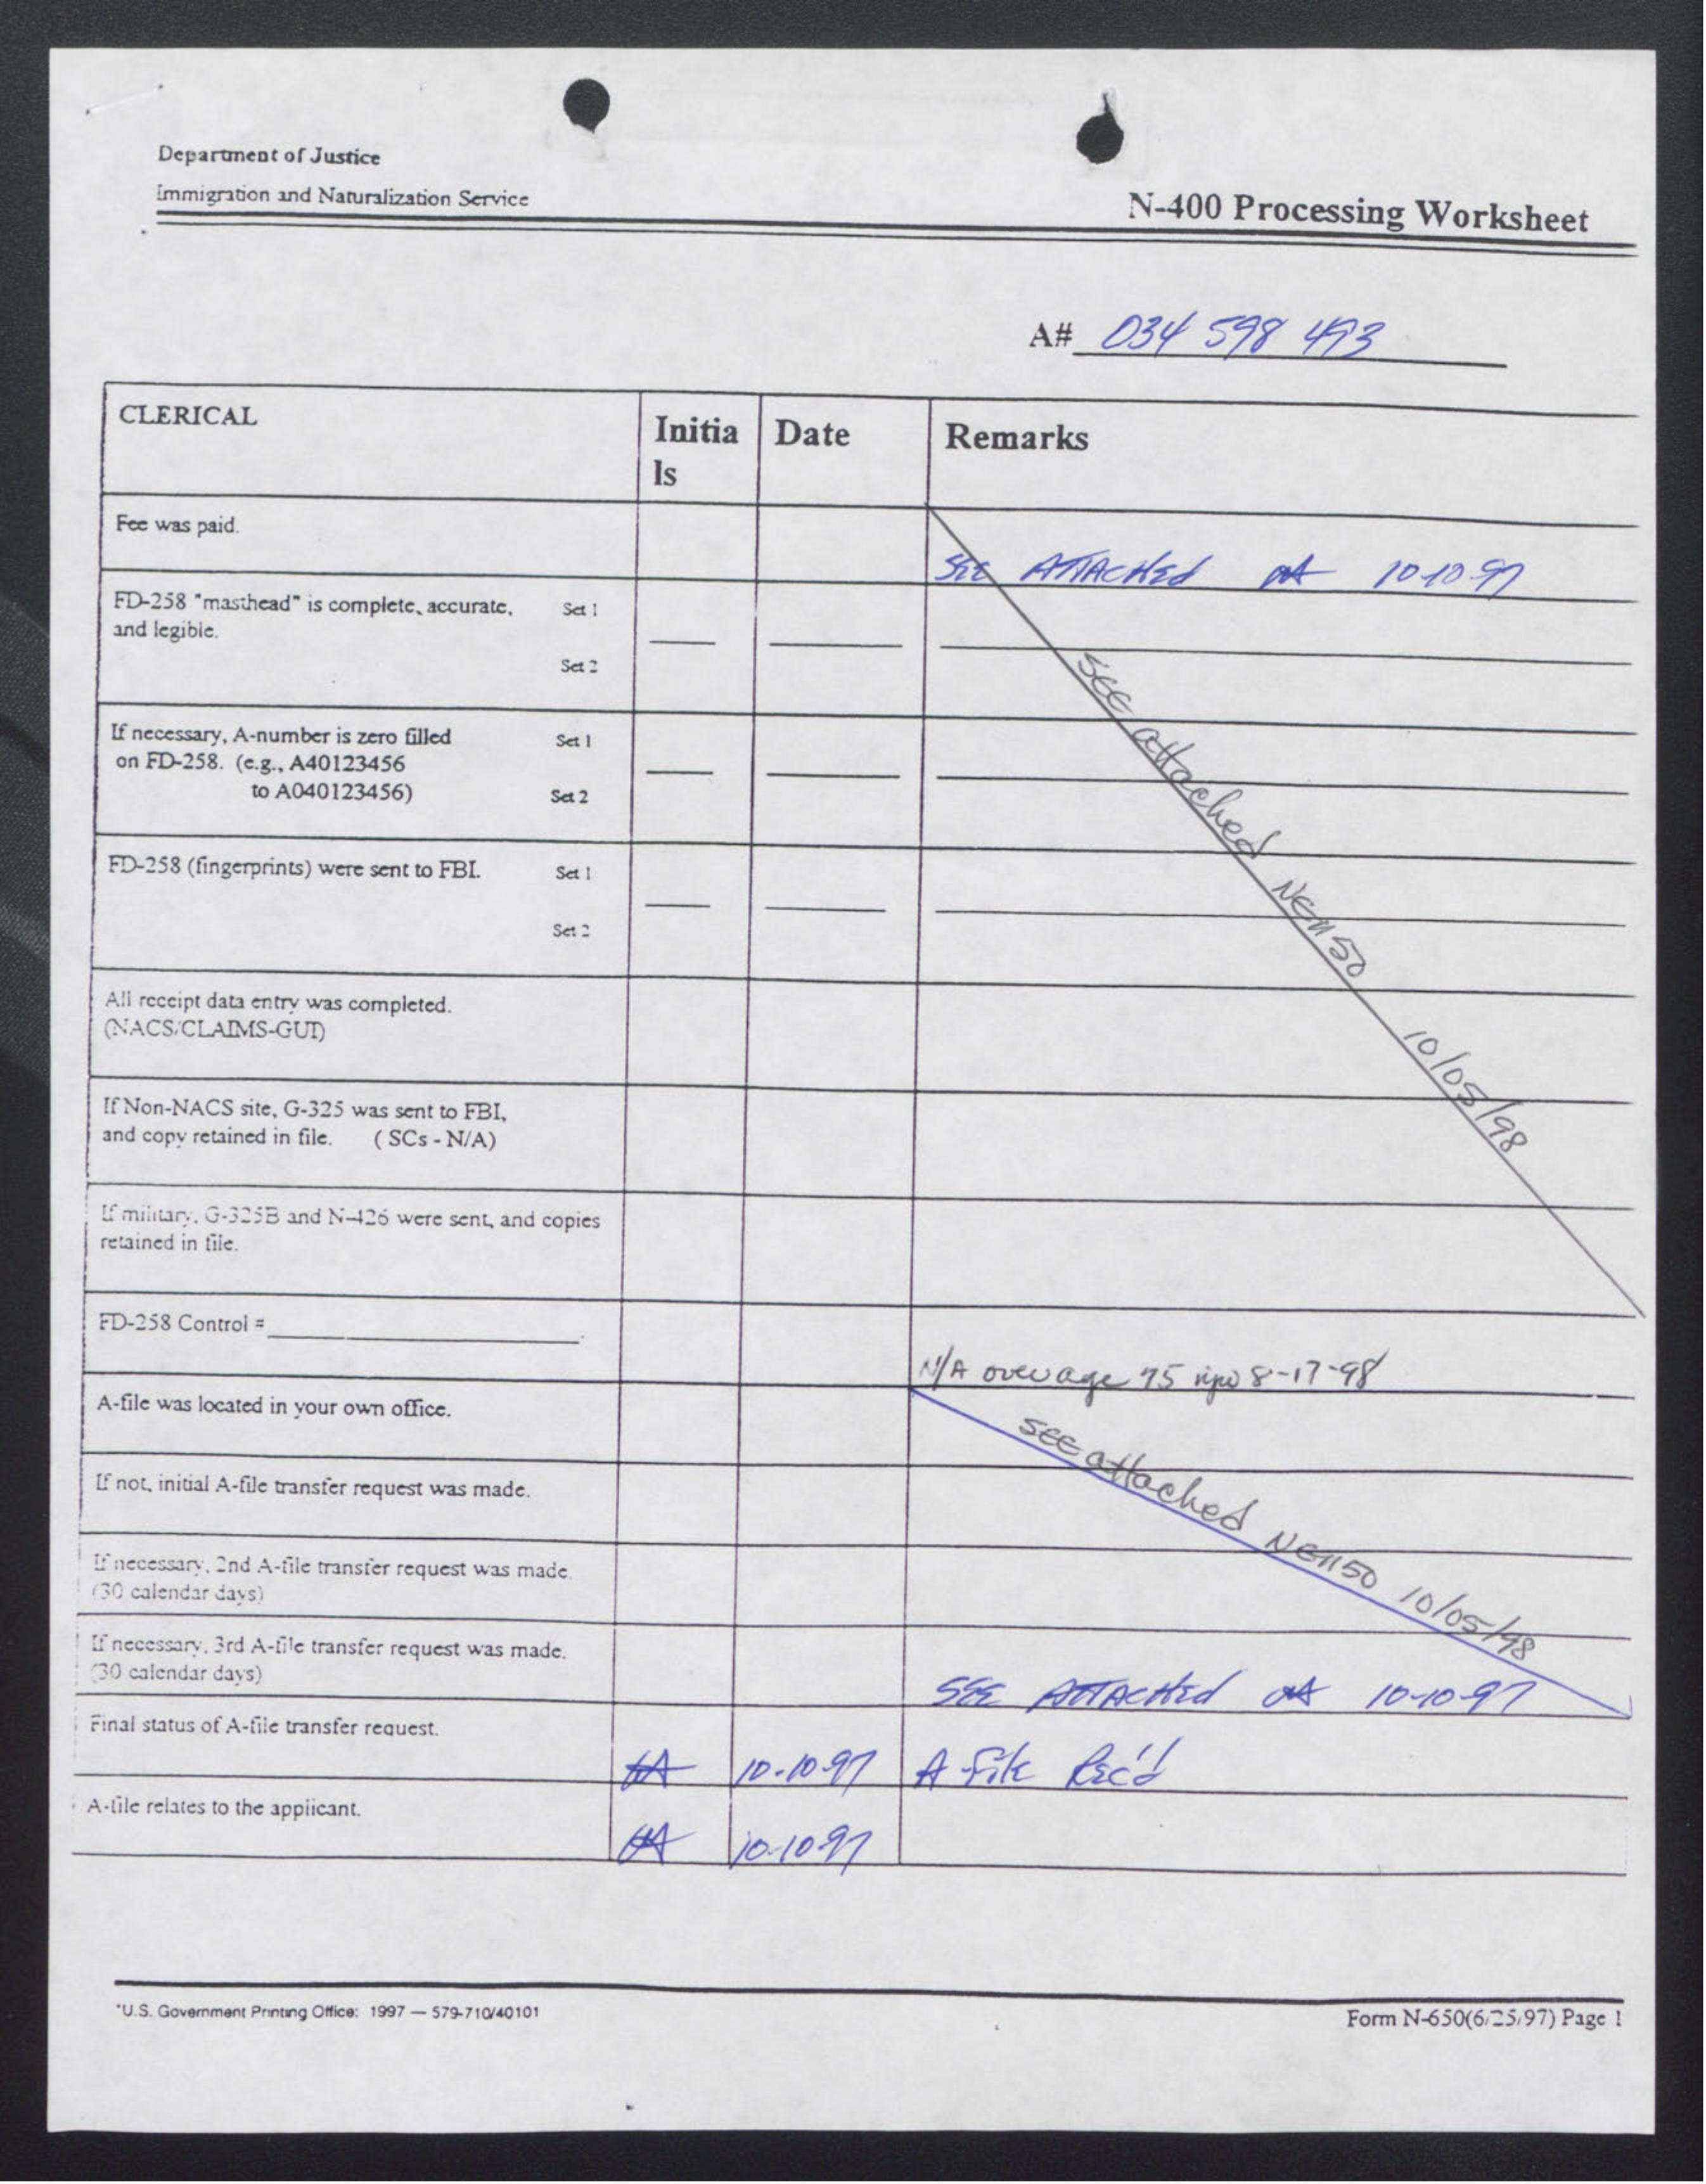 Department of Justice
Immigration and Naturalization Service
N-400 Processing Worksheet
A# 034 598 493
CLERICAL
Initia
ls
Date
Remarks
Fee was paid.
SEE ATTACHED 10-10-97
FD-258 "masthead" is complete, accurate, Set 1
and legible.
Set 2
See attached NEN50 10/05/98
If necessary, A-number is zero filled Set 1
on FD-258. (e.g., A40123456
to A040123456) Set 2
FD-258 (fingerprints) were sent to FBI. Set 1
Set 2
All receipt data entry was completed.
(NACS/CLAIMS-GUI)
If Non-NACS site, G-325 was sent to FBI,
and copy retained in file. (SCs - N/A)
If military, G-325B and N-426 were sent, and copies
retained in file.
FD-258 Control =
N/A over age 75 8-17-98
A-file was located in your own office.
See attached NEN50 10/05/98
If not, initial A-file transfer request was made.
If necessary, 2nd A-file transfer request was made.
(30 calendar days)
If necessary, 3rd A-file transfer request was made.
(30 calendar days)
SEE ATTACHED 10-10-97
Final status of A-file transfer request.
10-10-97 A File Rec'd
A-file relates to the applicant.
10-10-97
*U.S. Government Printing Office: 1997 — 579-710/40101
Form N-650(6/25/97) Page 1